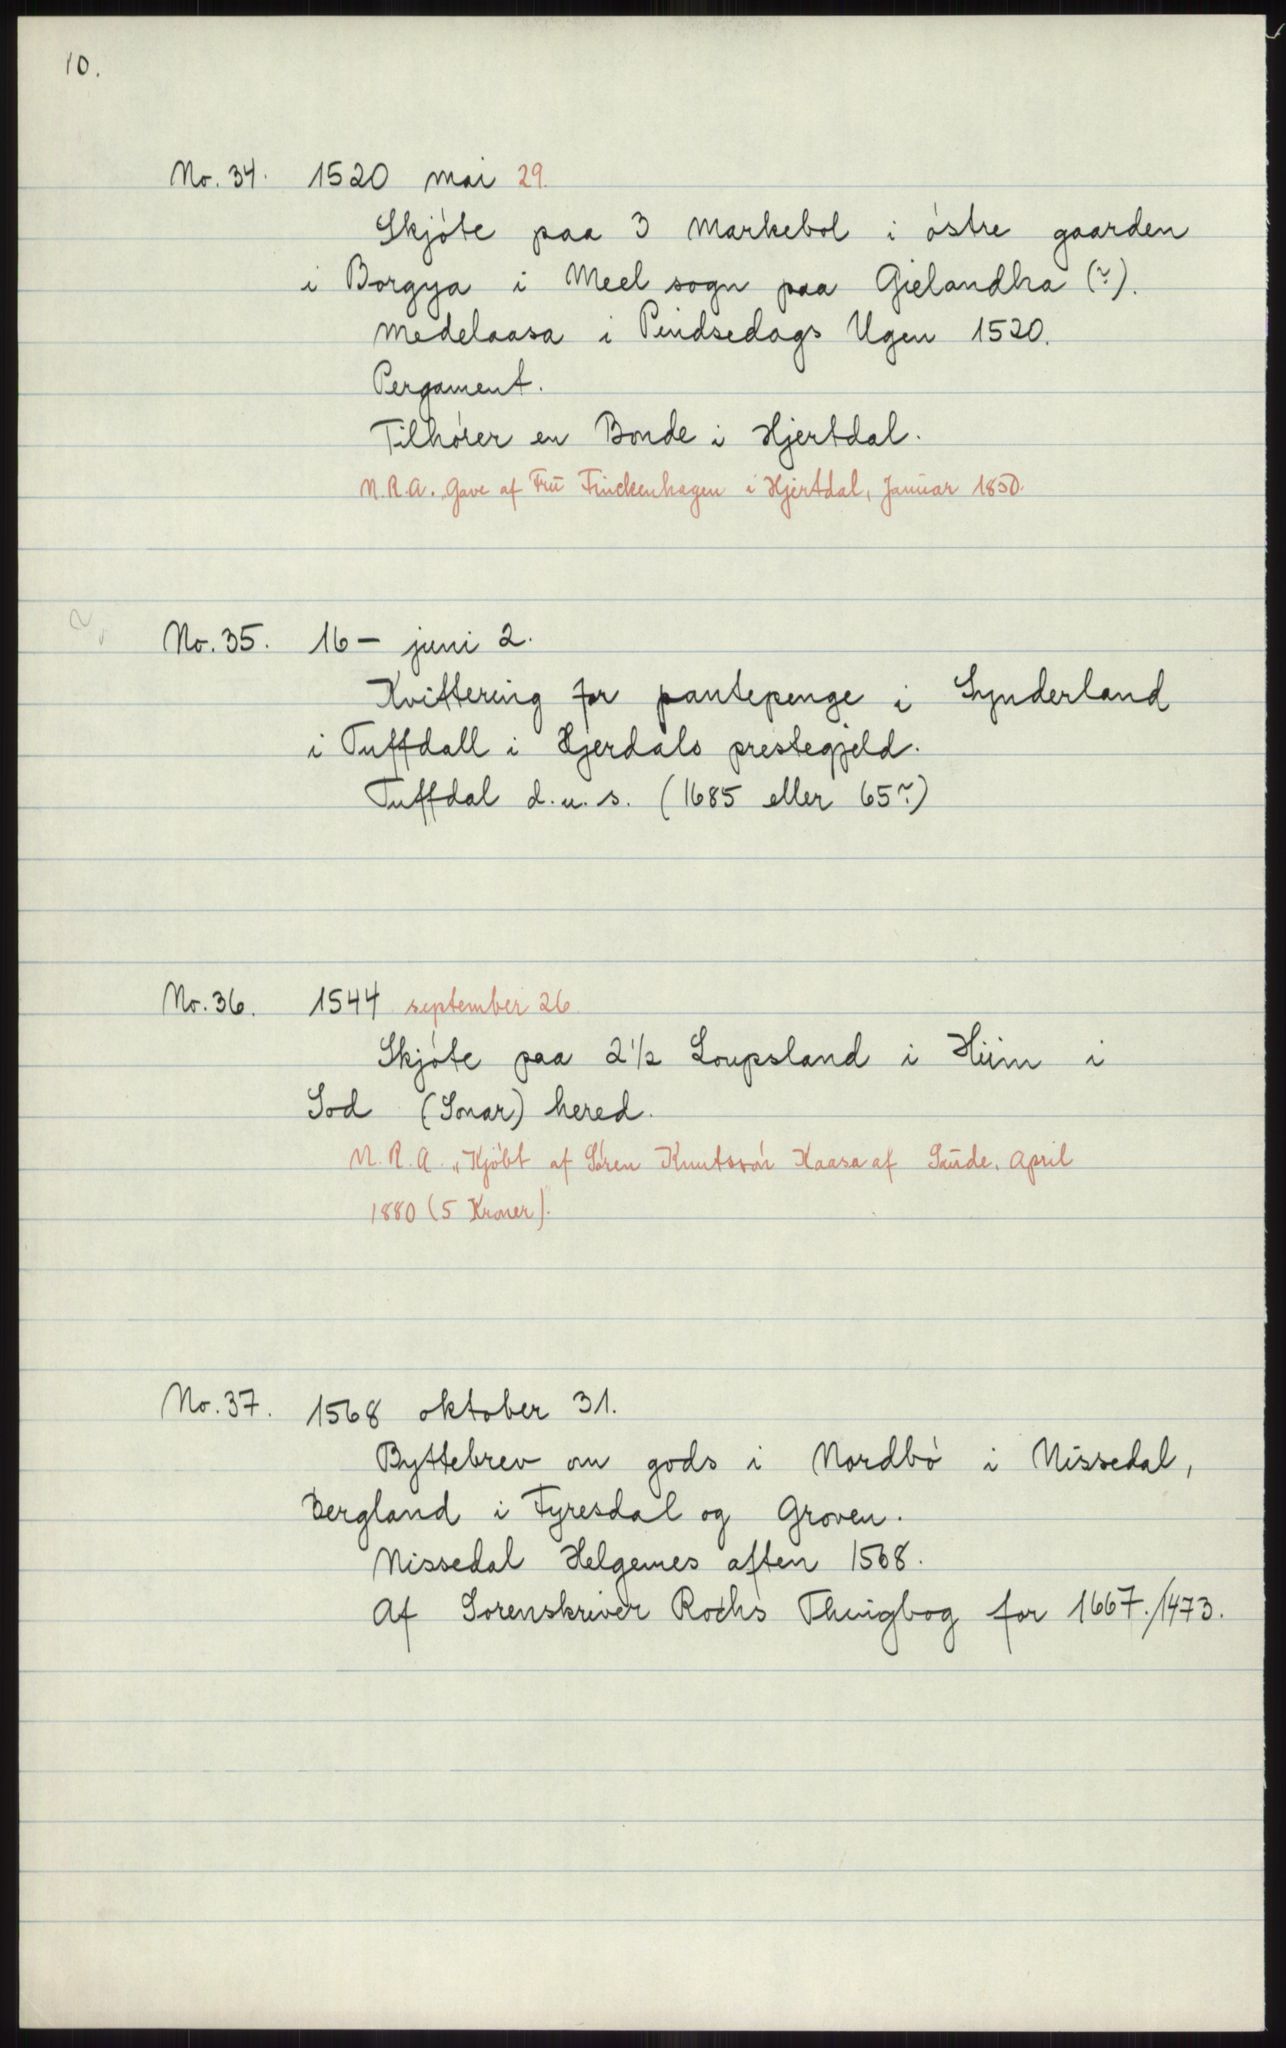 10.
No. 34. 1520 mai 29.
Skjóte paa 3 Markebol i óstre gaarden
i Borgya i Meel sogn paa Gielandha (?).
Medelaasa i Pindsedags Ugen 1520.
Pergament.
Tilhórer en Bonde i Hjertdal.
N.R.A. „Gave af Frū Finckenhagen i Hjertdal, Janūar 1850.
No. 35. 16 – juni 2.
Kvittering for pantepenge i Synderland
i Tuffdall i Hjerdals prestegjeld.
Tuffdal d.u.s. (1685 eller 65?)
No. 36. 1544 september 26.
Skjóte paa 2½ Loupsland i Hiim i
Sod (Sonar) hered.
N.R.A. „Kjóbt af Sóren Knutssón Kaasa af Saūde, April
1880 (5 Kroner).
No. 37. 1568 oktober 31.
Byttebrev om gods i Nordbó i Nissedal,
Bergland i Fyresdal og Groven.
Nissedal Helgemes aften 1568.
Af Sorenskriver Rochs Thingbog for 1667./1473.